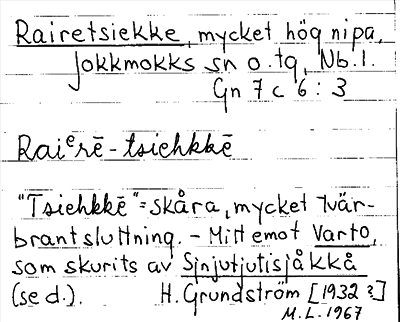 Rairetsiekke, mycket hög nipa,
Jokkmokks sn o. tg, Nb. l.
Gn 7 c 6 : 3
Raiᵉrē - tsiehkkē
"Tsiehkkē" = skåra, mycket tvär-
brant sluttning. - Mitt emot Varto,
som skurits av Sjnjutjutisjåkkå
(se d.). H. Grundström [1932 ?]
M.L. 1967